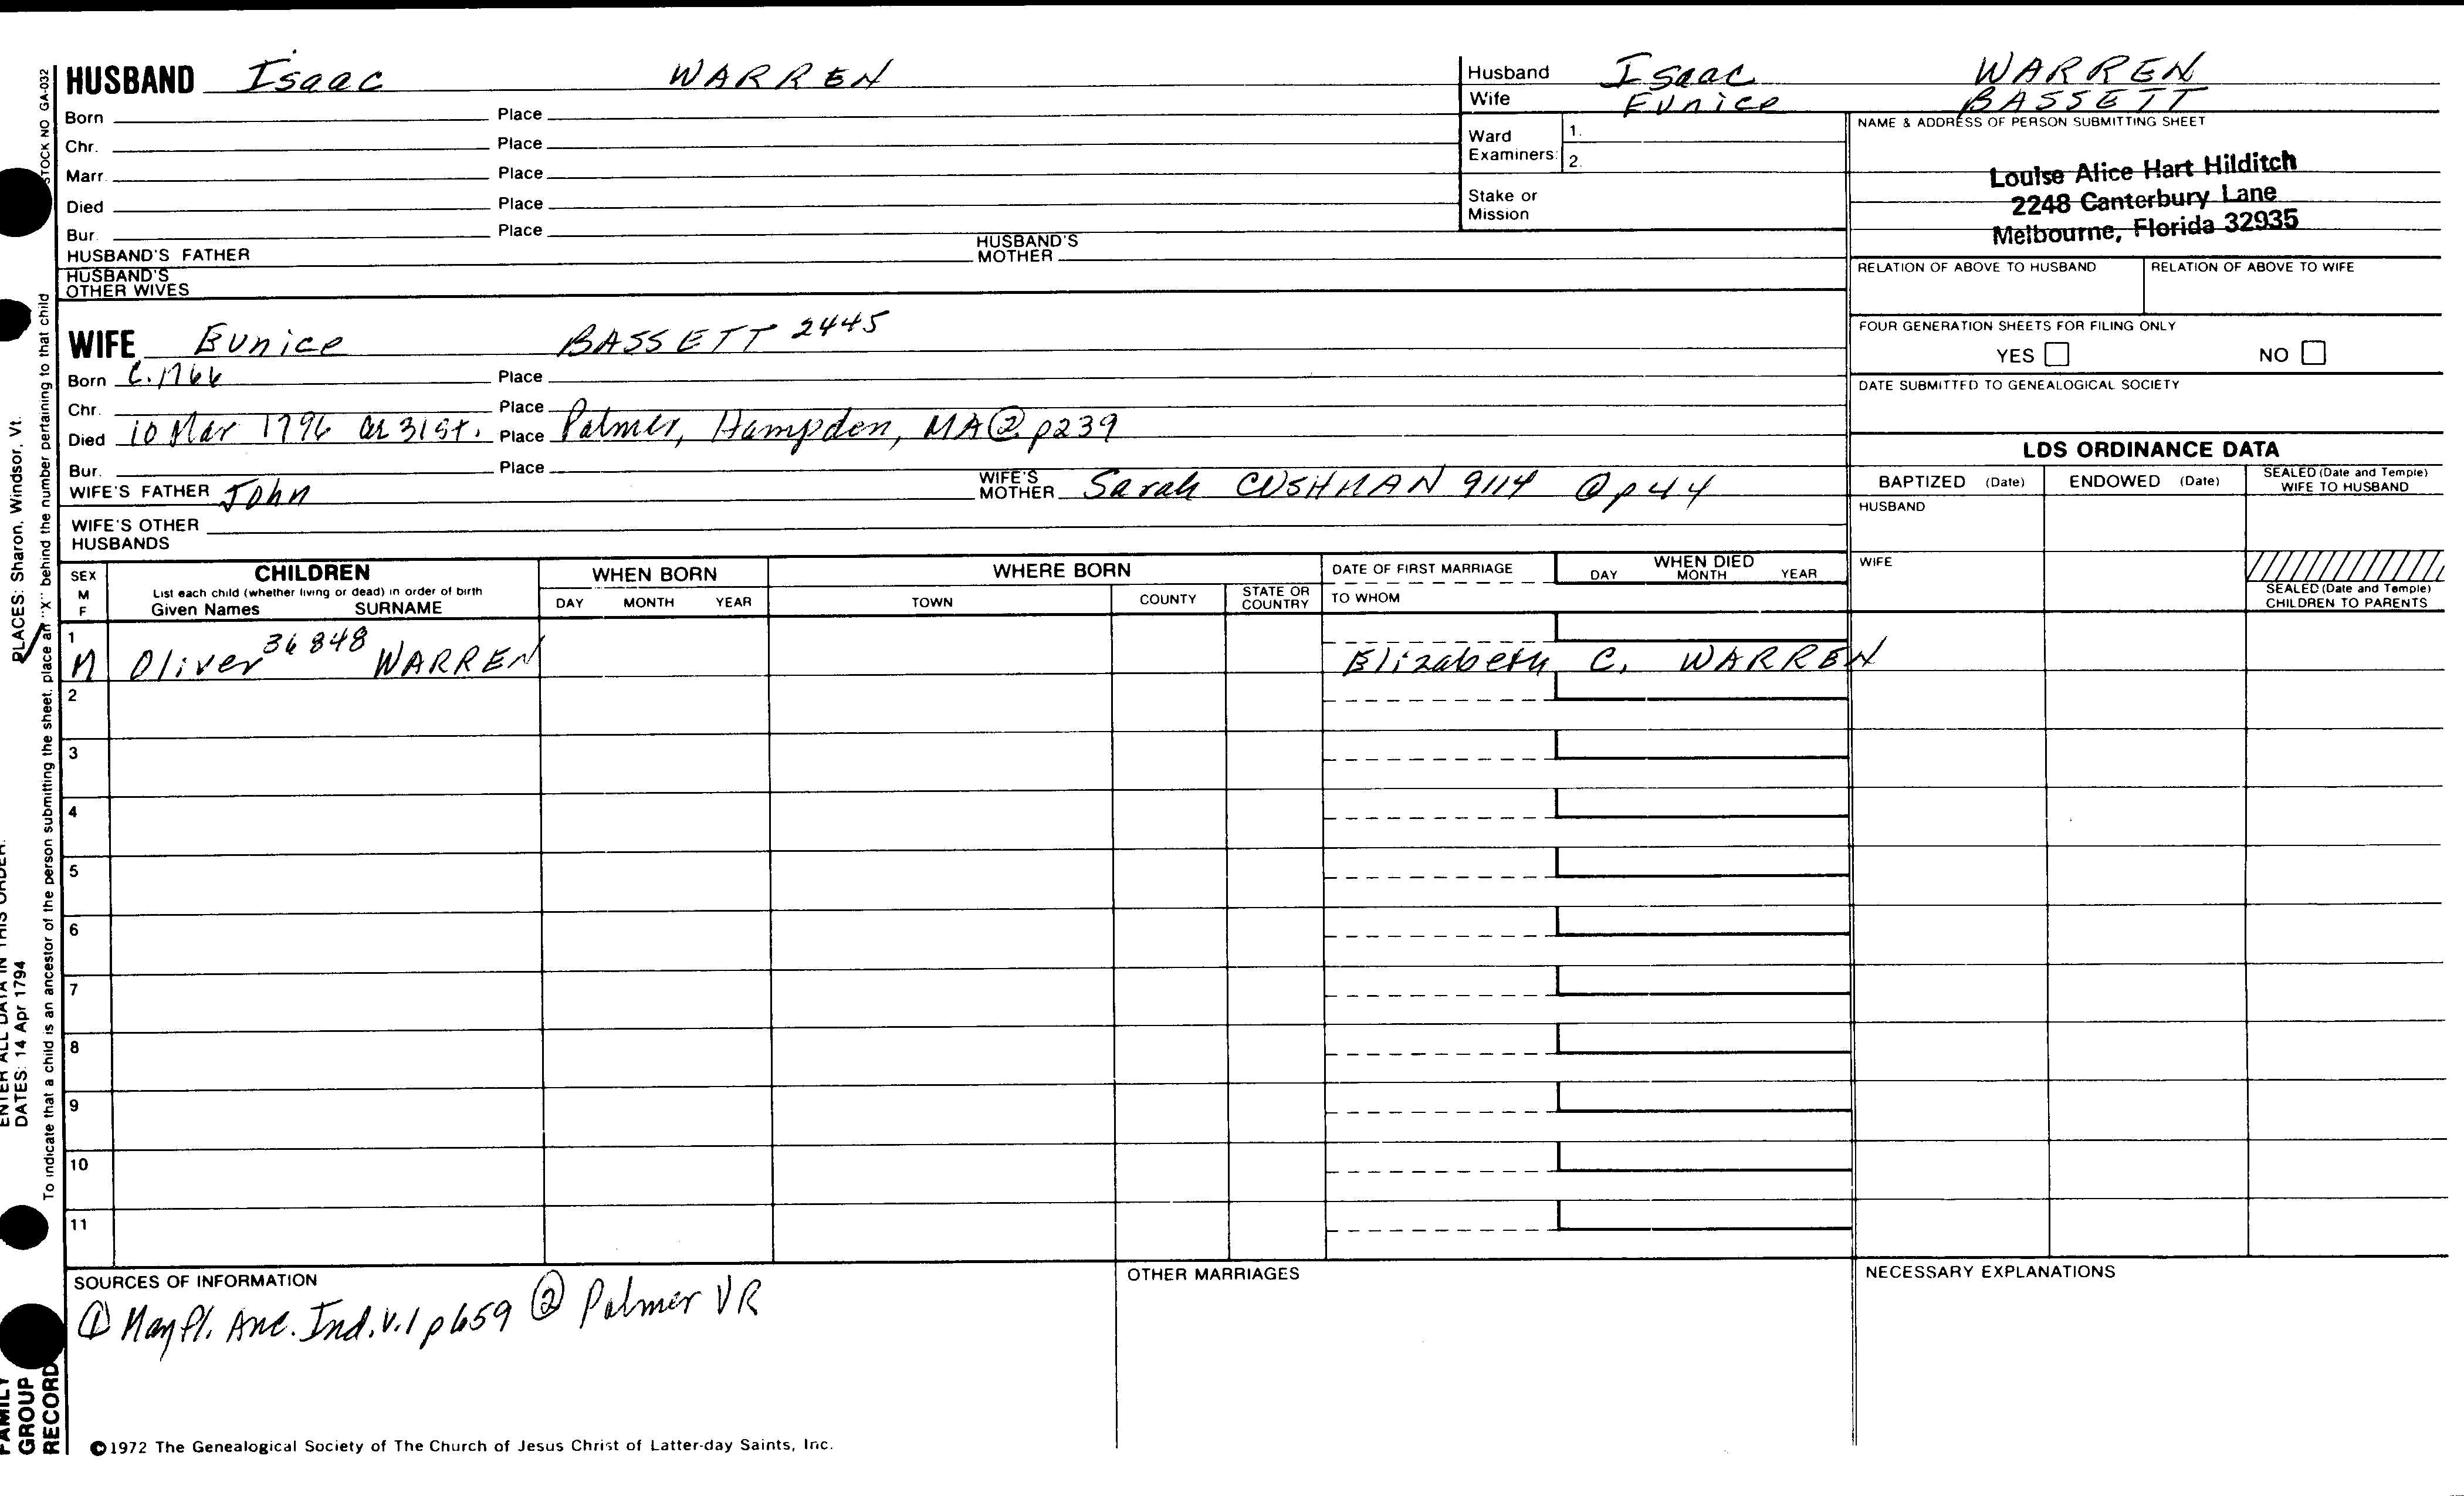 HUSBAND Isaac WARREN
Born Place
Chr. Place
Marr. Place
Died Place
Bur. Place
HUSBAND'S FATHER HUSBAND'S MOTHER
HUSBAND'S OTHER WIVES
Husband Isaac WARREN
Wife Eunice BASSETT
Ward Examiners: 1.
2.
Stake or Mission
NAME & ADDRESS OF PERSON SUBMITTING SHEET
Louise Alice Hart Hilditch
2248 Canterbury Lane
Melbourne, Florida 32935
RELATION OF ABOVE TO HUSBAND RELATION OF ABOVE TO WIFE
FOUR GENERATION SHEETS FOR FILING ONLY
YES NO
DATE SUBMITTED TO GENEALOGICAL SOCIETY
WIFE Eunice BASSETT 2445
Born C.1766 Place
Chr. Place
Died 10 Mar 1796 Place Palmer, Hampden, MA @ p239
Bur. Place
WIFE'S FATHER John WIFE'S MOTHER Sarah CUSHMAN 9114 @ p44
WIFE'S OTHER HUSBANDS
LDS ORDINANCE DATA
BAPTIZED (Date) ENDOWED (Date) SEALED (Date and Temple) WIFE TO HUSBAND
HUSBAND
WIFE
SEALED (Date and Temple) CHILDREN TO PARENTS
SEX M F
CHILDREN
List each child (whether living or dead) in order of birth
Given Names SURNAME
WHEN BORN
DAY MONTH YEAR
WHERE BORN
TOWN COUNTY STATE OR COUNTRY
DATE OF FIRST MARRIAGE
TO WHOM
WHEN DIED
DAY MONTH YEAR
1 M Oliver 36848 WARREN Elizabeth C. WARREN
2
3
4
5
6
7
8
9
10
11
SOURCES OF INFORMATION
① Mayfl. Anc. Ind. V.1 p659 ② Palmer VR
OTHER MARRIAGES
NECESSARY EXPLANATIONS
©1972 The Genealogical Society of The Church of Jesus Christ of Latter-day Saints, Inc.
STOCK NO GA-032
To indicate that a child is an ancestor of the person submitting the sheet, place an "X" behind the number pertaining to that child
PLACES: Sharon, Windsor, Vt.
ENTER ALL DATA IN THIS ORDER:
DATES: 14 Apr 1794
FAMILY GROUP RECORD